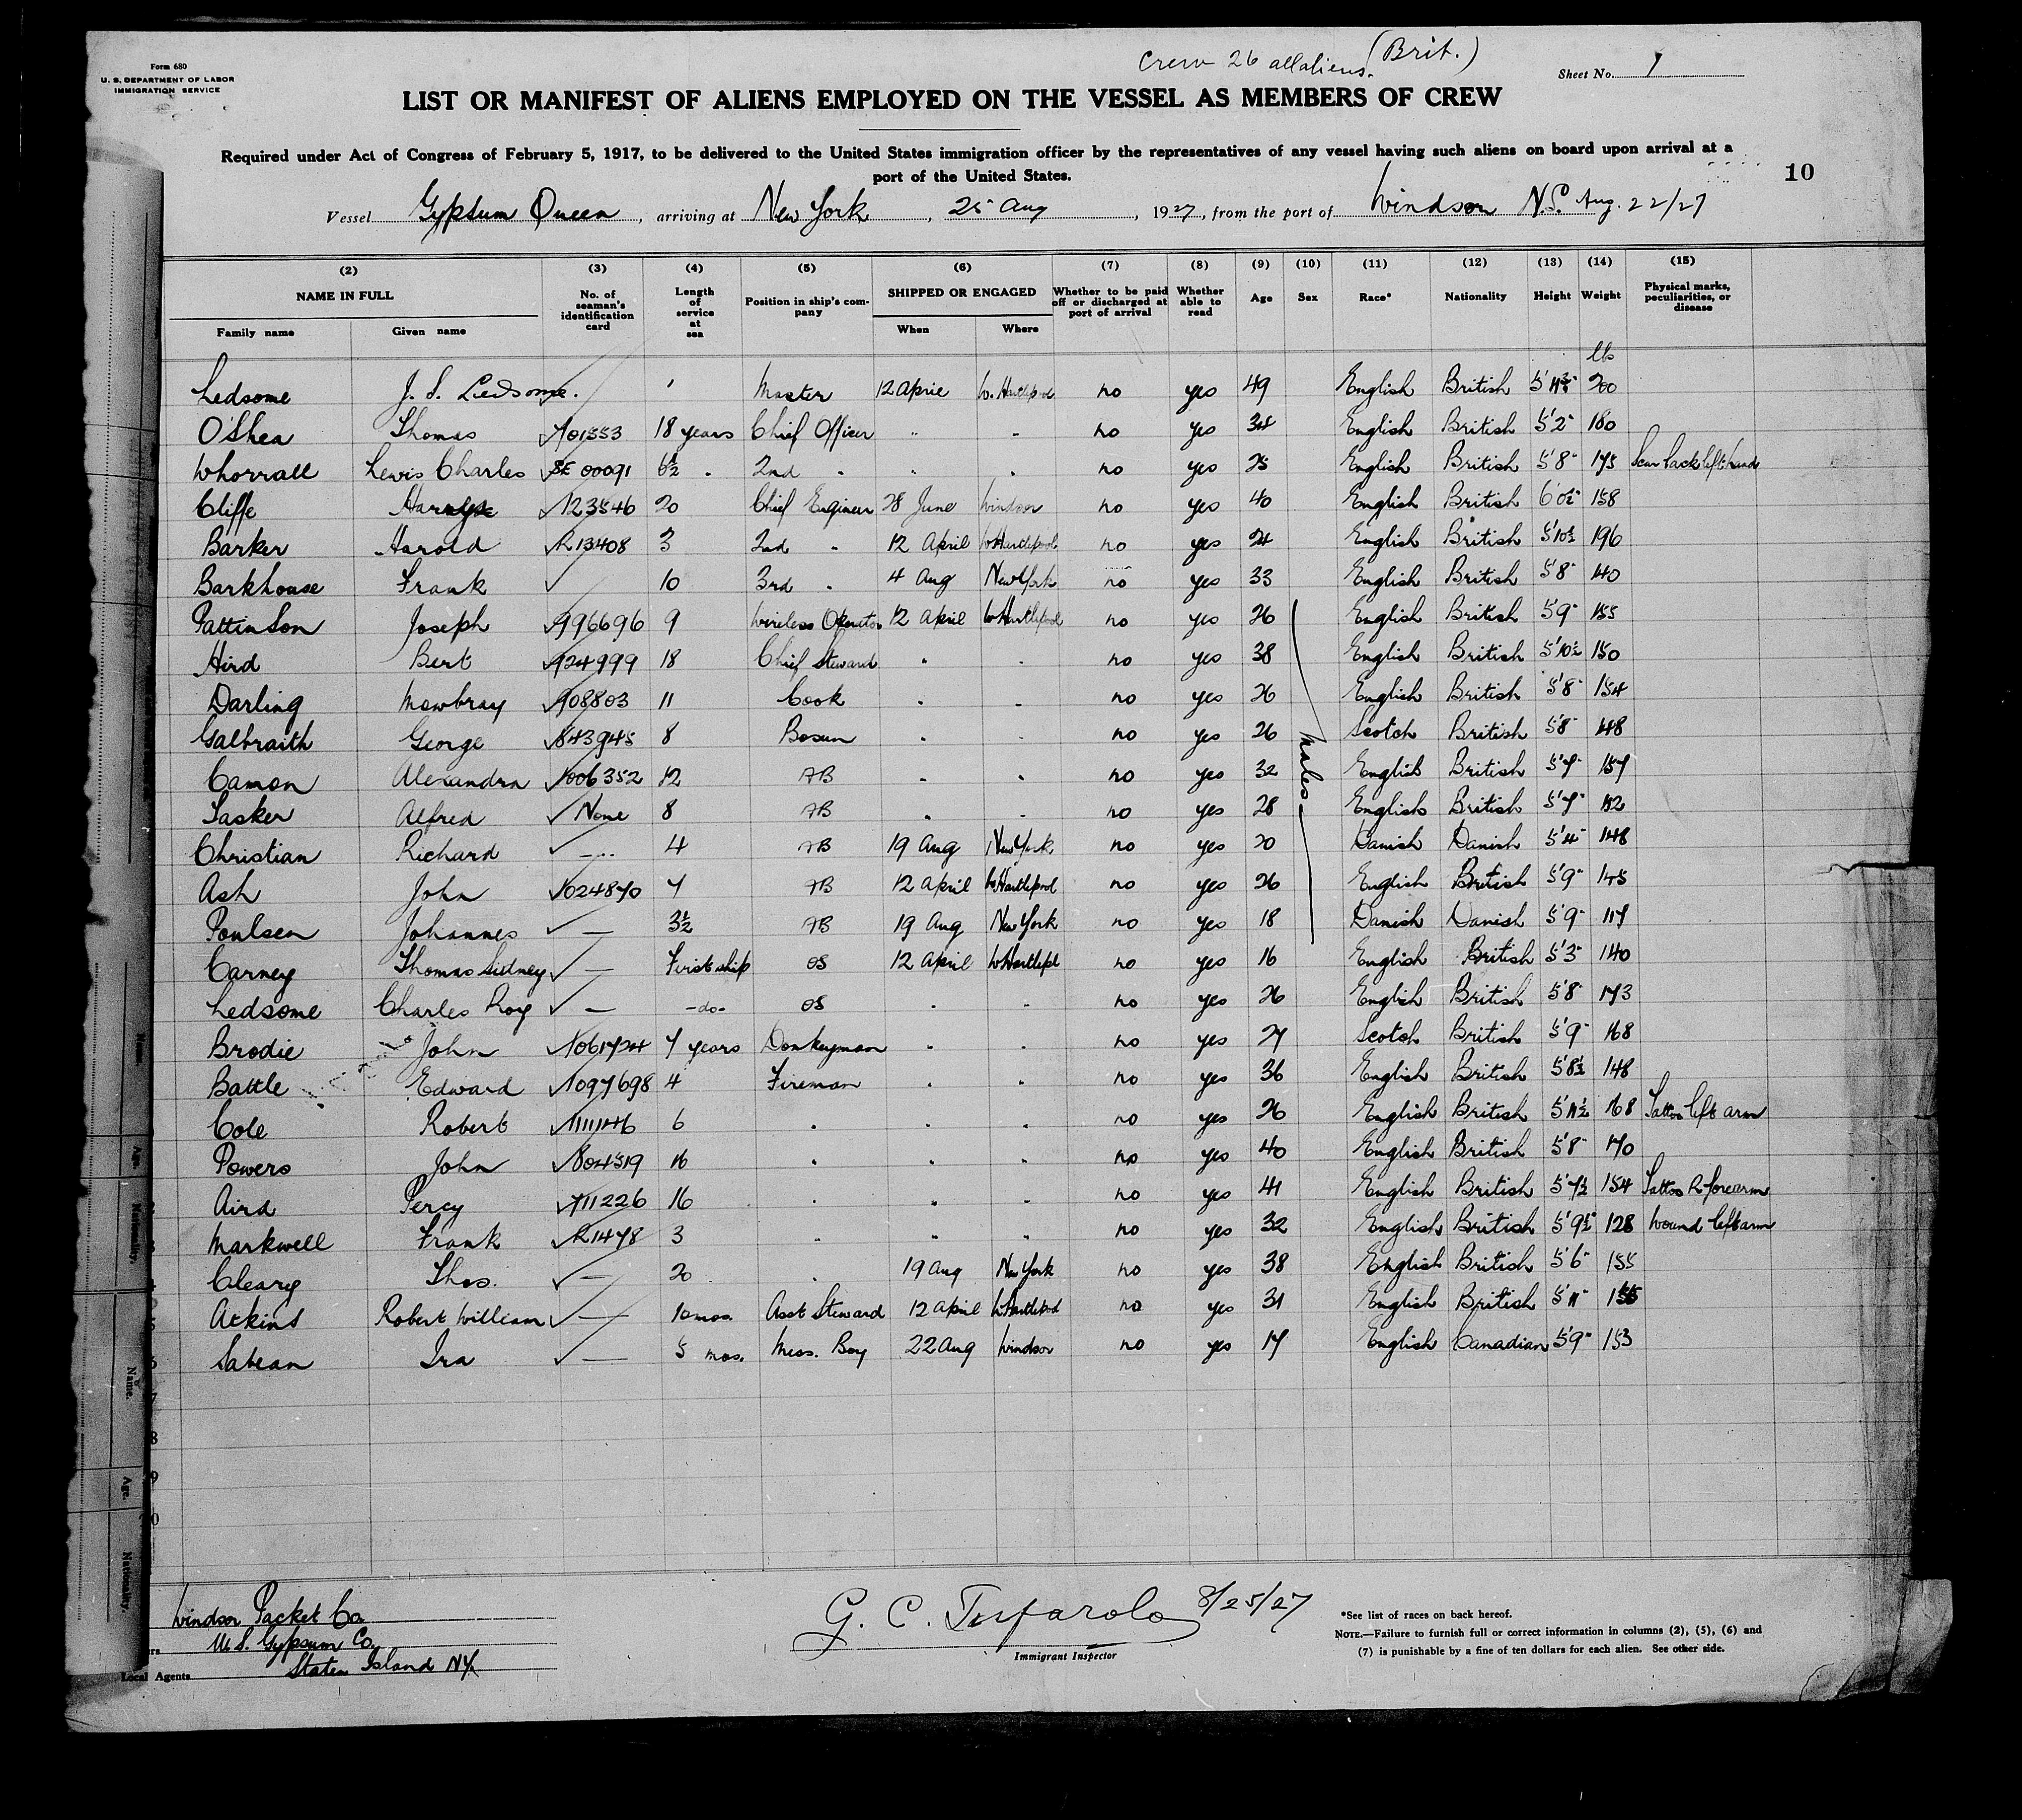 Form 680
U. S. DEPARTMENT OF LABOR
IMMIGRATION SERVICE
Crew 26 all aliens. (Brit.)
Sheet No. 1
LIST OR MANIFEST OF ALIENS EMPLOYED ON THE VESSEL AS MEMBERS OF CREW
Required under Act of Congress of February 5, 1917, to be delivered to the United States immigration officer by the representatives of any vessel having such aliens on board upon arrival at a
port of the United States.
10
Vessel Gypsum Queen, arriving at New York, 25 Aug, 1927, from the port of Windsor N.S. Aug. 22/27
(2) (3) (4) (5) (6) (7) (8) (9) (10) (11) (12) (13) (14) (15)
NAME IN FULL No. of seaman's identification card Length of service at sea Position in ship's company SHIPPED OR ENGAGED Whether to be paid off or discharged at port of arrival Whether able to read Age Sex Race* Nationality Height Weight Physical marks, peculiarities, or disease
Family name Given name When Where
lb
Ledsome J. S. Ledsome. Master 12 April W. Hartlepool no yes 49 English British 200
O'Shea Thomas 18 years Chief Officer " " no yes 34 English British 5'2" 180
Whorrall Lewis Charles SE 00091 6½ " 2nd " " " no yes 25 English British 5'8" 175 Scar back left hand
Cliffe 123546 20 Chief Engineer 28 June Windsor no yes 40 English British 158
Barker Harold R13408 3 2nd " 12 April W Hartlepool no yes 24 English British 5'10½ 196
Barkhouse Frank 10 3rd " 4 Aug New York no yes 33 English British 5'8" 140
Pattinson Joseph 996696 9 Wireless Operator 12 April W Hartlepool no yes 26 English British 5'9" 155
Hird Bert 924999 18 Chief Steward " " no yes 38 English British 5'10½ 150
Darling Mowbray 908803 11 Cook " " no yes 26 English British 5'8" 154
Galbraith George 843945 8 Bosun " " no yes 26 Scotch British 5'8" 148
Camon Alexandra 1006352 12 AB " " no yes 32 English British 5'7" 157
Tasker Alfred None 8 AB " " no yes 28 English British 5'7"
males
Christian Richard 4 AB 19 Aug New York no yes 20 Danish Danish 5'4" 148
Ash John 1024870 7 AB 12 April W Hartlepool no yes 26 English British 5'9" 145
Poulsen Johannes — 3½ AB 19 Aug New York no yes 18 Danish Danish 5'9" 117
Carney Thomas Sidney — First ship OS 12 April W Hartlepl no yes 16 English British 5'3" 140
Ledsome Charles Roy — -do- OS " " no yes 26 English British 5'8" 173
Brodie John 1061724 7 years Donkeyman " " no yes 27 Scotch British 5'9" 168
Battle Edward 1097698 4 Fireman " " no yes 36 English British 5'8½ 148
Cole Robert 1111146 6 " " " no yes 26 English British 5'11½ 168 Tattoo left arm
Powers John 804519 16 " " " no yes 40 English British 5'8" 170
Aird Percy 711226 16 " " " no yes 41 English British 5'7½ 154 Tattoo R forearm
Markwell Frank R1478 3 " " " no yes 32 English British 5'9½" 128 Wound left arm
Cleary Thos. — 20 " 19 Aug New York no yes 38 English British 5'6" 155
Atkins Robert William — 10 mos. Asst Steward 12 April W Hartlepool no yes 31 English British 5'11"
Sabean Ira — 5 mos. Mess. Boy 22 Aug Windsor no yes 17 English Canadian 5'9" 153
Windsor Packet Co
U.S. Gypsum Co.
Local Agents Staten Island NY.
G. C. Tufarolo 8/25/27
Immigrant Inspector
*See list of races on back hereof.
NOTE.—Failure to furnish full or correct information in columns (2), (5), (6) and
(7) is punishable by a fine of ten dollars for each alien. See other side.
Name.
Age.
Nationality.
Name.
Age.
Nationality.